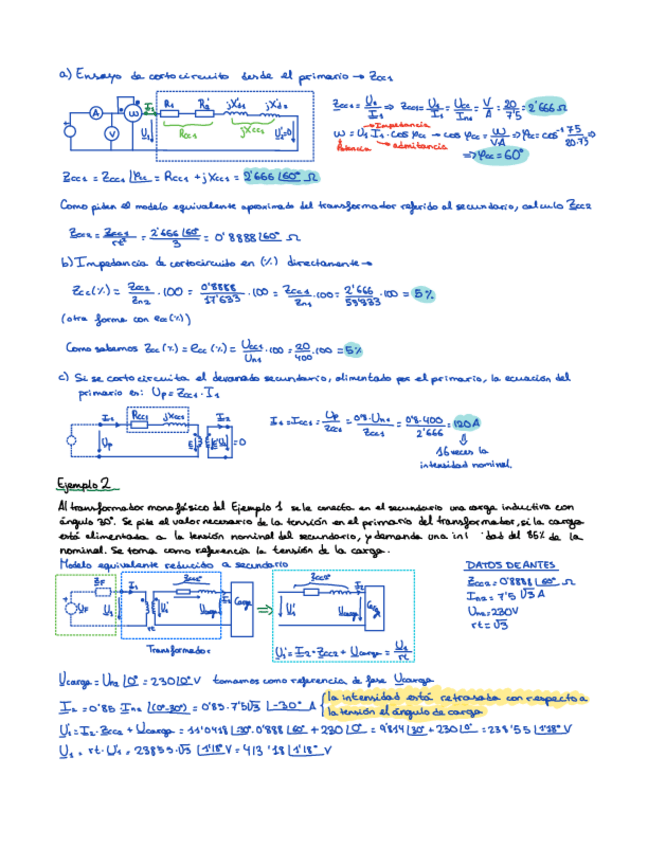 a) Ensayo de cortocircuito desde el primario → Zcc1
A
W
V
I1
U1
R1
R'2
jXd1
jX'd2
Rcc1
jXcc1
U'2=0
Zcc1 = U1/I1 ⇒ Zcc1 = U1/I1 = Ucc/In1 = V/A = 20/7'5 = 2'666 Ω
→ Impedancia
W = U1 I1 · cos φcc → cos φcc = W/VA ⇒ φcc = cos⁻¹ 75/20·7'5 ⇒
Potencia → admitancia
⇒ φcc = 60°
Zcc1 = Zcc1 |φcc = Rcc1 + jXcc1 = 2'666 |60° Ω
Como piden el modelo equivalente aproximado del transformador referido al secundario, calculo Zcc2
Zcc2 = Zcc1/rt² = 2'666 |60°/3 = 0'8888 |60° Ω
b) Impedancia de cortocircuito en (%) directamente →
Zcc(%) = Zcc2/Zn2 · 100 = 0'8888/17'633 · 100 = Zcc1/Zn1 · 100 = 2'666/53'333 · 100 = 5%
(otra forma con ecc(%))
Como sabemos Zcc(%) = ecc(%) = Ucc1/Un1 · 100 = 20/400 · 100 = 5%
c) Si se cortocircuita el devanado secundario, alimentado por el primario, la ecuación del
primario es: Up = Zcc1 · I1
I1
Rcc1
jXcc1
I2
Up
=0
I1 = Icc1 = Up/Zcc1 = 0'8·Un1/Zcc1 = 0'8·400/2'666 = 120A
⇓
16 veces la
intensidad nominal.
Ejemplo 2
Al transformador monofásico del Ejemplo 1 se le conecta en el secundario una carga inductiva con
ángulo 30°. Se pide el valor necesario de la tensión en el primario del transformador, si la carga
está alimentada a la tensión nominal del secundario, y demanda una in dad del 85% de la
nominal. Se toma como referencia la tensión de la carga.
Modelo equivalente reducido a secundario
DATOS DE ANTES
Zcc2 = 0'8888 |60° Ω
In2 = 7'5 √3 A
Un2 = 230V
rt = √3
ZF
UF
I1
U1
rt
U'1
Zcc2
I2
Ucarga
Carga
⇒
U'1
Zcc2
I2
Ucarga
Carga
U'1 = I2·Zcc2 + Ucarga = U1/rt
Transformador
Ucarga = Un2 |0° = 230 |0° V tomamos como referencia de fase Ucarga
I2 = 0'85 In2 |(0°-30°) = 0'85·7'5√3 |-30° A { la intensidad está retrasada con respecto a
la tensión el ángulo de carga
U'1 = I2·Zcc2 + Ucarga = 11'0418 |-30°·0'888 |60° + 230 |0° = 9'814 |30° + 230 |0° = 238'55 |1'18° V
U1 = rt·U'1 = 238'55·√3 |1'18° V = 413'18 |1'18° V